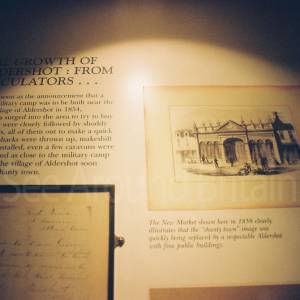 E GROWTH OF
DERSHOT : FROM
CULATORS . . .
soon as the announcement that a
ilitary camp was to be built near the
llage of Aldershot in 1854,
s surged into the area to try to buy
were closely followed by shoddy
s, all of them out to make a quick
hacks were thrown up, makeshift
stalled, even a few caravans were
nd as close to the military camp
he village of Aldershot soon
hanty town.
The New Market shown here in 1859 clearly
illustrates that the "shanty town" image was
quickly being replaced by a respectable Aldershot
with fine public buildings.